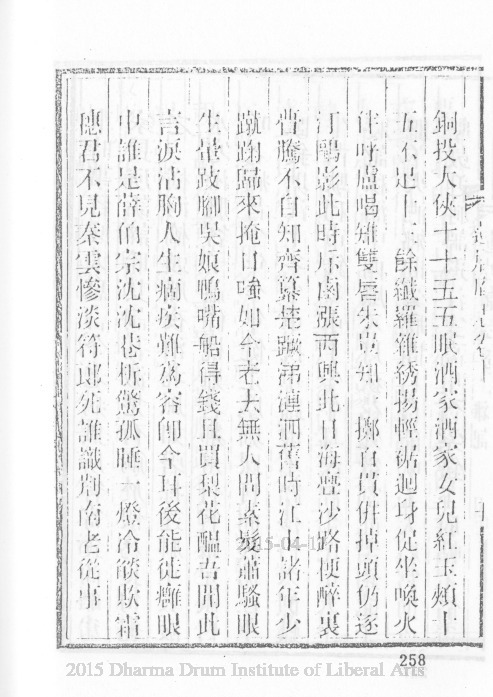 銅投大俠十十五五眠酒家酒家女兒紅玉頰十
五不足十三餘纖羅雜綉揚輕裾迴身促坐喚火
伴呼盧喝雉雙唇朱豈知一擲百貫併掉頭仍逐
汀鷗影此時斥鹵漲西興此日海壖沙路梗醉裏
瞢騰不自知齊纂楚蹶涕漣洏舊時江上諸年少
蹴踘歸來掩口嗤如今老大無人問素髮蕭騷眼
生暈跂腳吳娘鴨嘴船得錢且買梨花醞吾聞此
言淚沾胸人生痼疾難為容卽今耳後能徙癰眼
中誰是薛伯宗沈沈巷柝驚孤睡一燈冷燄欺霜
穗君不見秦雲慘淡符郎死誰識荆南老從事
2015-04-1
258
2015 Dharma Drum Institute of Liberal Arts